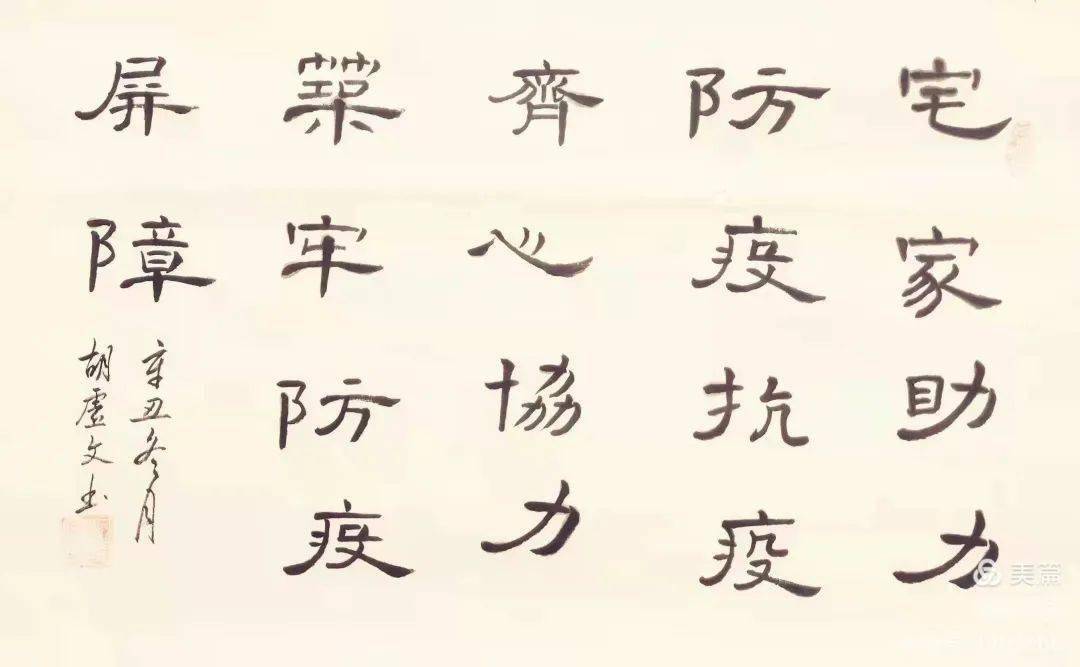 宅家助力
防疫抗疫
齊心協力
築牢防疫
屏障
辛丑冬月
胡虚文书
美篇